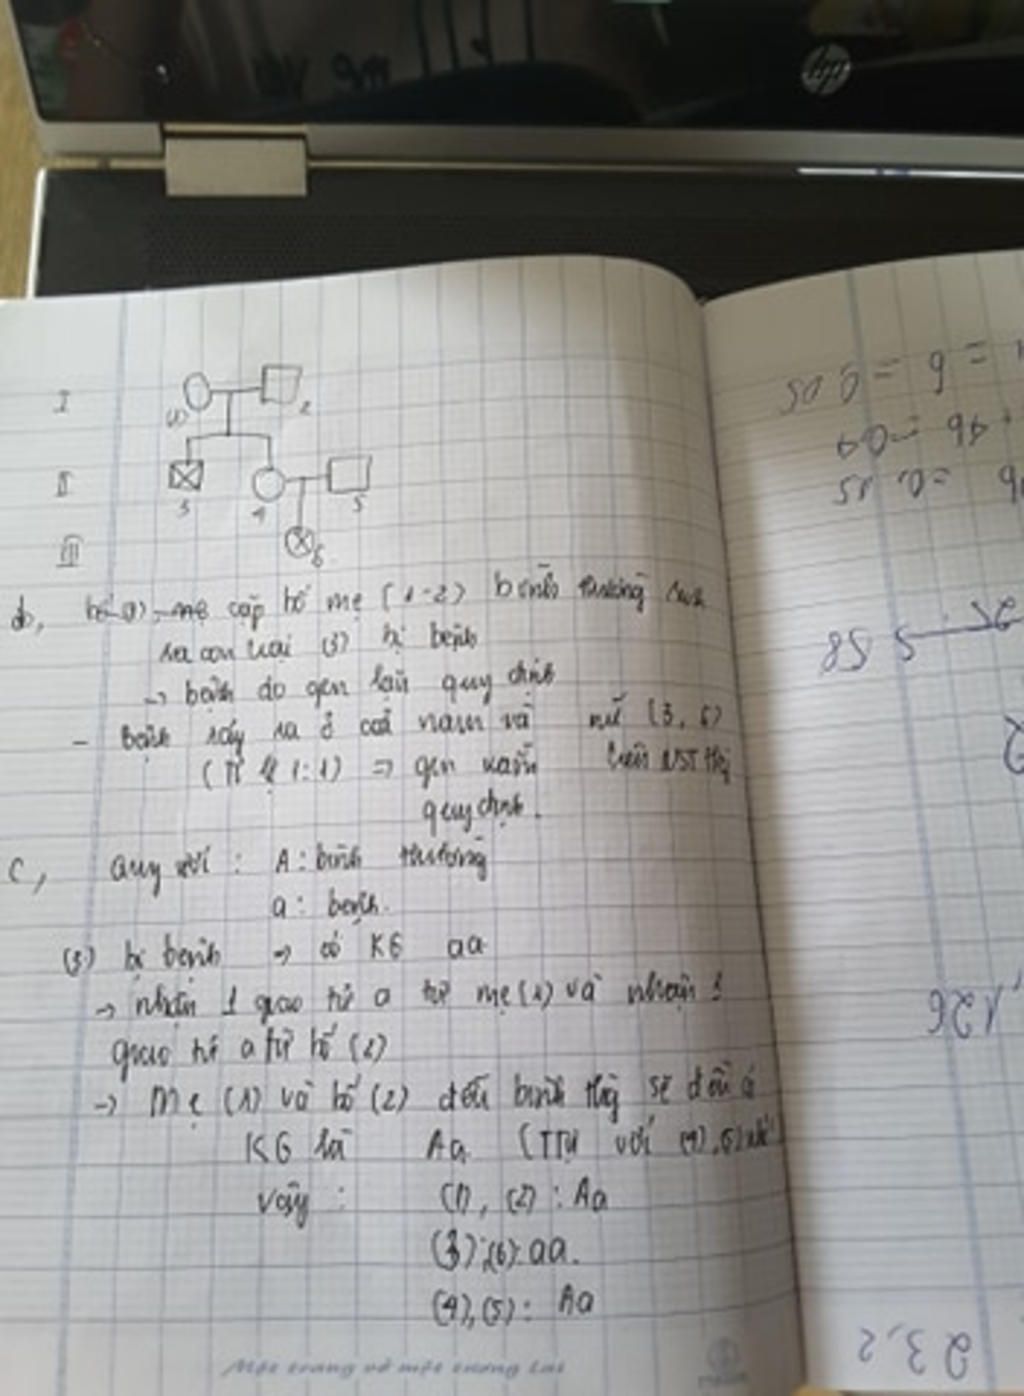 hp
I
(1)
2
II
3
4
5
III
6
b, cặp bố mẹ (1-2) bình thường sinh
ra con trai (3) bị bệnh
→ bệnh do gen lặn quy định
- Bệnh xảy ra ở cả nam và nữ (3, 6)
(Tỉ lệ 1:1) ⇒ gen trên NST thg
quy định.
c, Quy ước : A : bình thường
a : bệnh.
(3) bị bệnh → có KG aa
→ nhận 1 giao tử a từ mẹ (1) và nhận 1
giao tử a từ bố (2)
→ Mẹ (1) và bố (2) đều bình thg sẽ đều có
KG là Aa (TTự với (4), (5)
vậy : (1), (2) : Aa
(3), (6): aa.
(4), (5) : Aa
Một trang vở một tương lai
= 6 = 0,05
46 = 0,4
= 0,15
5 58
126
23,2